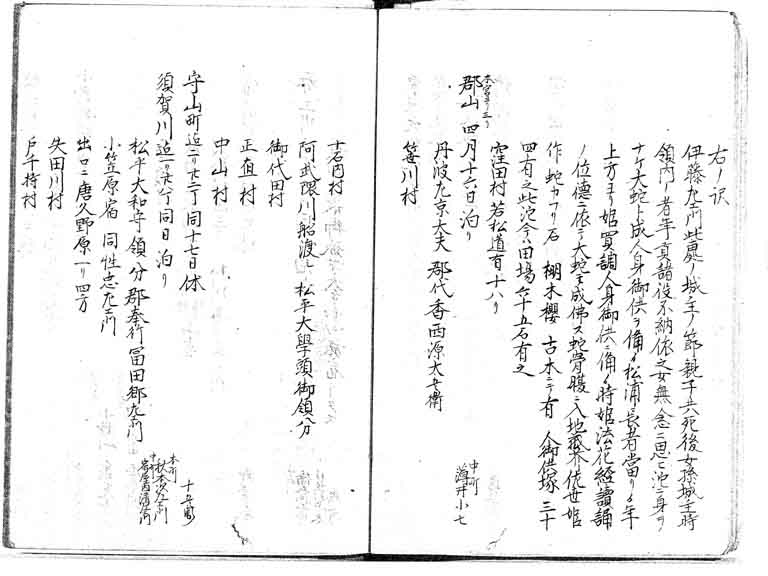 右ノ沢
伊藤左エ門此處ノ城主ノ節親子共死後女孫城主時
領内ノ者年貢諸役不納依之女無念ニ思ヒ沱ニ身ヲ
ナケ大蛇ト成人身御供ヲ備ル松浦長者當リノ年
上方ヨリ姫買調人身御供ニ備ル時姫法花経讀誦
ノ位徳ニ依テ大蛇モ成佛ス蛇骨腹ニ入地蔵
作 蛇カフリ石 棚木櫻 古木ニテ有 人御供塚 三十
四有之此沱今ハ田場六十五石有之
窪田村 若松道有十八リ
本宮ヨリ三リ
郡山 四月十六日泊リ
丹波左京太夫 郡代香西源太兵衛
中町
薄井小七
笹川村
十石内村
阿武隈川船渡し 松平大學頭御領分
御代田村
正直村
中山村
守山町迠二リ廿二丁 同十七日休
須賀川迠 同日泊リ
松平大和守領分 郡奉行冨田郷左エ門
小笠原宿 同性忠左エ門
本町
中町
出口ニ唐久野原一リ四方
失田川村
戸千持村